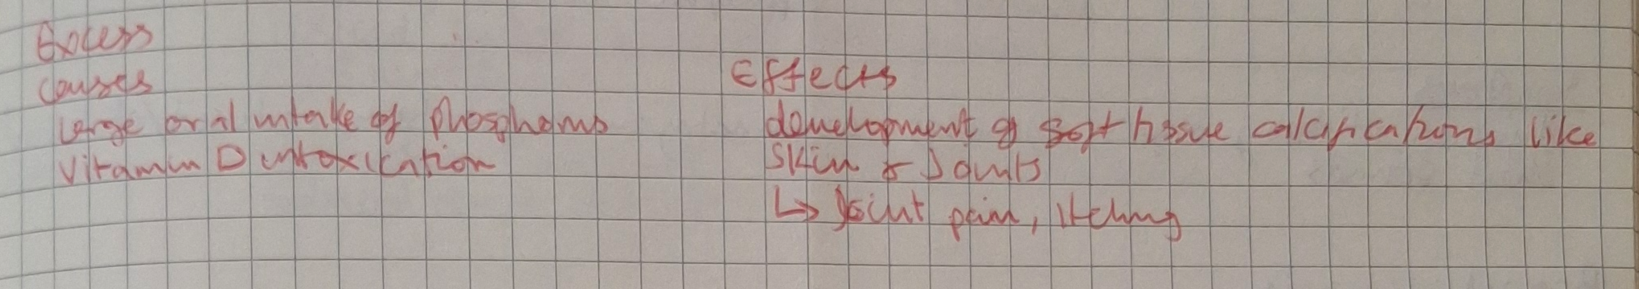 Excess
Causes
Large oral intake of Phosphorus
Vitamin D intoxication
Effects
development of soft tissue calcifications like
Skin & Joints
↳ Joint pain, itching